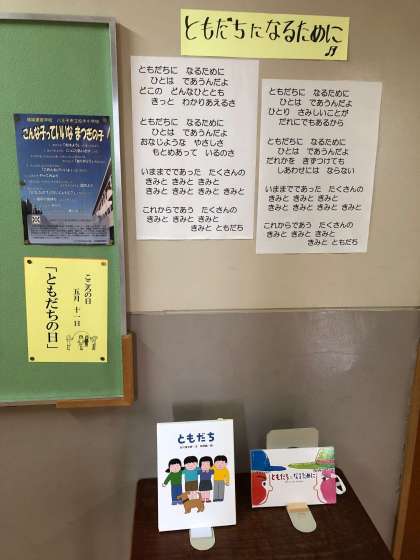 ともだちになるために
ともだちに なるために
ひとは であうんだよ
どこの どんなひととも
きっと わかりあえるさ
ともだちに なるために
ひとは であうんだよ
おなじような やさしさ
もとめあって いるのさ
いままでであった たくさんの
きみと きみと きみと
きみと きみと きみと きみと
これからであう たくさんの
きみと きみと きみと
きみと ともだち
ともだちに なるために
ひとは であうんだよ
ひとり さみしいことが
だれにでもあるから
ともだちに なるために
ひとは であうんだよ
だれかを きずつけても
しあわせには ならない
いままでであった たくさんの
きみと きみと きみと
きみと きみと きみと きみと
これからであう たくさんの
きみと きみと きみと
きみと ともだち
こんな子っていいな まつぎの子
こころの日
五月 十一日
「ともだちの日」
ともだち
ともだちになるために